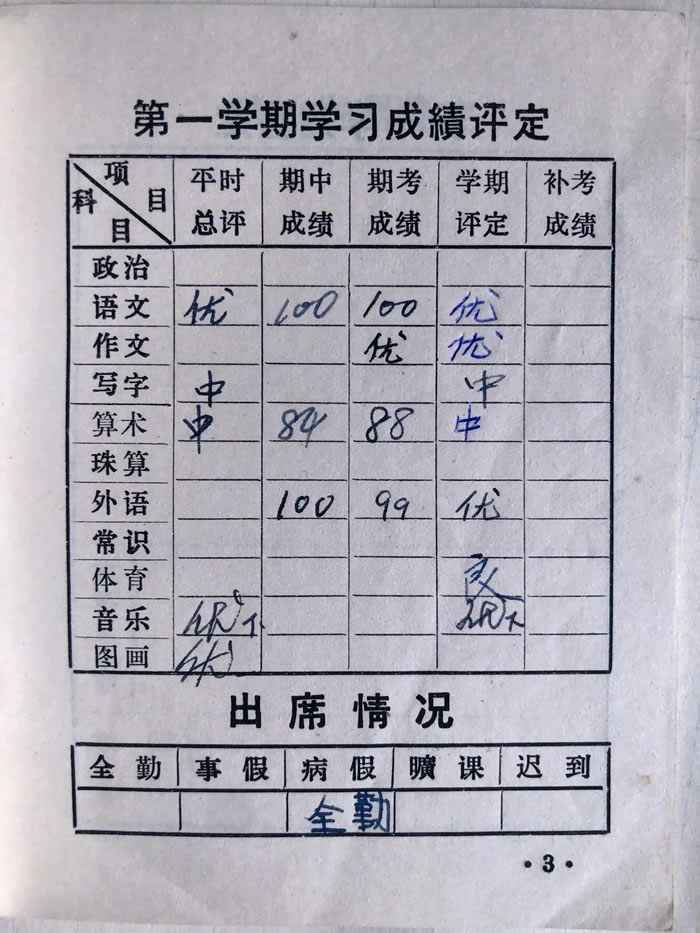 第一学期学习成績评定
项目 科目 平时总评 期中成绩 期考成绩 学期评定 补考成绩
政治
语文 优 100 100 优
作文 优 优
写字 中 中
算术 中 84 88 中
珠算
外语 100 99 优
常识
体育 良
音乐 优下 优下
图画 优
出席情况
全勤 事假 病假 曠课 迟到
全勤
·3·